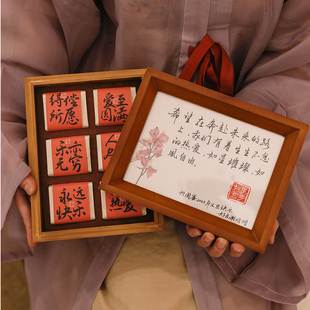 得偿
所愿
爱至
圆满
示亦
无穷
人
永远
快乐
热爱
希望在奔赴未来的路
上，我们有着生生不息
的热爱，如星璀璨，如
风自由。